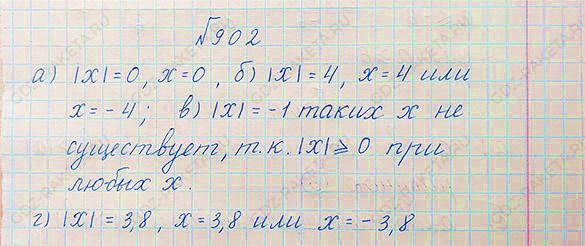 №902
а) |x|=0, x=0, б) |x|=4, x=4 или
x=-4; в) |x|=-1 таких x не
существует, т.к. |x|⩾0 при
любых x.
г) |x|=3,8, x=3,8 или x=-3,8